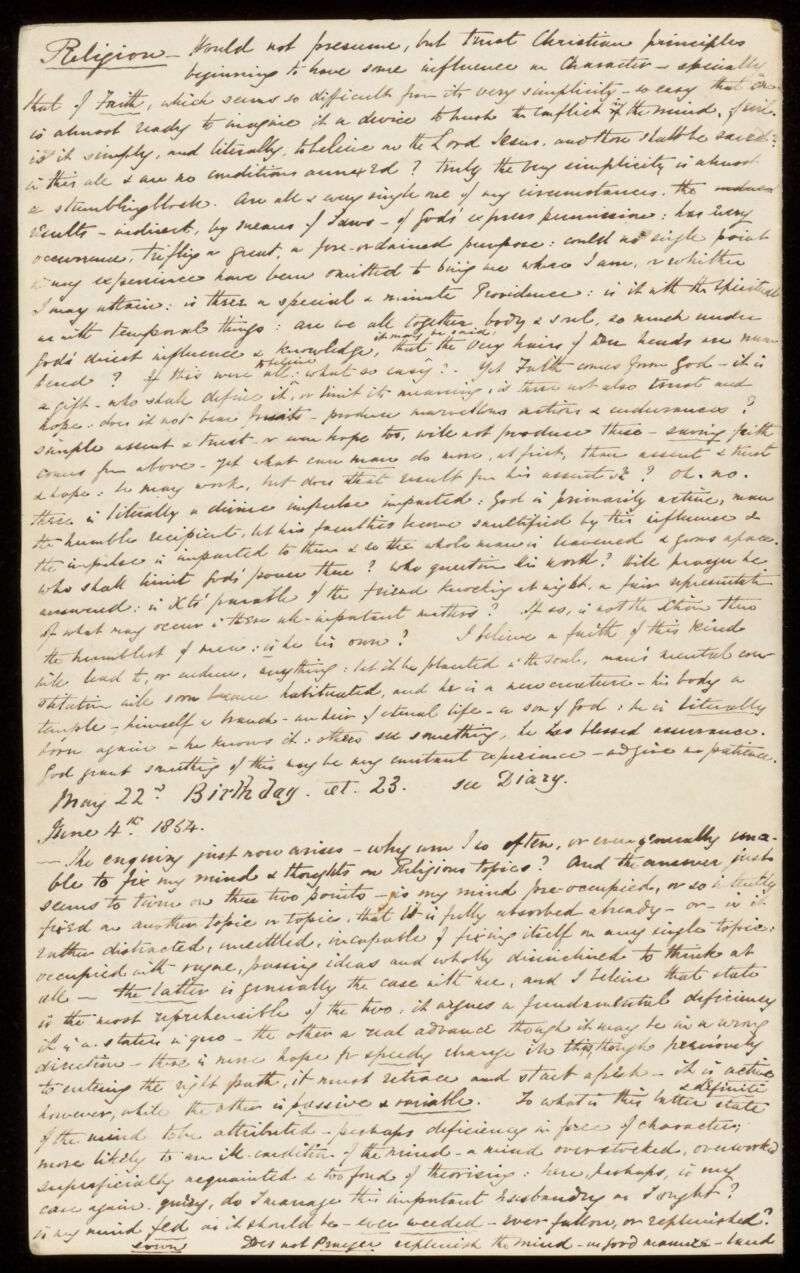 Religion - Would not presume, but trust Christian principles
beginning to have some influence on Character - specially
that of Faith, which seems so difficult from its very simplicity - so easy that one
is almost ready to imagine it a device to hush the conflict of the mind.
is it simply, and literally, to believe on the Lord Jesus, and thou shalt be saved?
is this all & are no conditions annexed? truly the very simplicity is almost
a stumblingblock. Are all & every single one of my circumstances, the
results - indirect, by means of Laws - of God's express permission: has every
occurrence, trifling or great, a fore-ordained purpose: could no single point
in my experience have been omitted to bring me where I am, or whither
I may attain: is there a special & minute Providence: is it with the spiritual
as with temporal things: are we all together, body & soul, so much under
God's direct influence & knowledge, it may be said, that the very hairs of our heads are num
bered? If this were to believe all: what so easy? - Yet Faith comes from God - it is
a gift - who shall define it, or limit its meaning, is there not also trust and
hope: does it not bear fruits - produce marvellous actions & endurances?
simple assent & trust - or even hope too, will not produce these - saving faith
comes from above - yet what can man do more, at first, than assent & trust
& hope: he may work, but does that result from his assent &c? Oh. no.
there is literally a divine impulse imparted: God is primarily active, man
the humble recipient, let his faculties become sanctified by this influence &
the impulse is imparted to them & so the whole man is leavened & grows apace.
who shall limit God's power there? Who question His work? Will prayer be
answered: is Xts' parable of the friend knocking at night, a fair representation
of what may occur in these all-important matters? If so, is not the Xtian then
the humblest of men: is he his own? I believe a faith of this kind
will lead to, or endure, anything: let it be planted in the soul, man's mental con-
stitution will soon become habituated, and he is a new creature - his body a
temple - himself a branch - an heir of eternal life - a son of God: he is literally
born again - he knows it: others see something, he has blessed assurance.
God grant something of this may be my constant experience - & give me patience.
May 22nd Birthday. æt. 23. see Diary.
June 4th. 1854.
- The enquiry just now arises - why am I so often, or even generally una-
ble to fix my mind & thoughts on Religious topics? And the answer just
seems to turn on these two points - is my mind pre-occupied, or so intently
fixed on another topic or topics, that it is fully absorbed already - or - is it
rather distracted, unsettled, incapable of fixing itself on any single topic:
occupied with vague, passing ideas and wholly disinclined to think at
all - the latter is generally the case with me, and I believe that state
is the most reprehensible of the two: it argues a fundamental deficiency
it is a status in quo - the other a real advance though it may be in a wrong
direction - there is more hope for speedy change in this though previously
to entering the right path, it must retrace and start afresh - it is active
however, while the other is passive & variable. To what is this latter & definite state
of the mind to be attributed - perhaps deficiency in force of character;
more likely to an ill-condition of the mind - a mind overstocked, overworked
superficially acquainted & too fond of theorising: here, perhaps, is my
case again. query, do I manage this important husbandry as I ought?
is my mind fed as it should be - ever weeded - ever fallow, or replenished?
sown Does not Prayer replenish the mind - as good manure - land